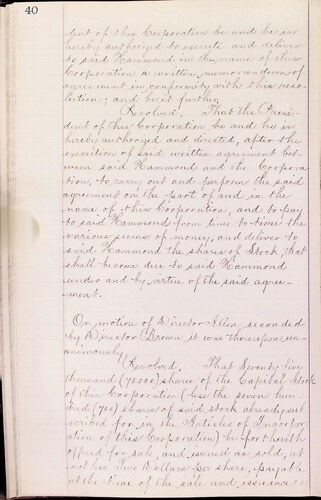 40
dent of this Corporation be and he is
hereby authorized to execute and deliver
to said Hammond in the name of this
Corporation a written memorandum of
agreement in conformity with this reso-
lution; and be it further
Resolved, That the Presi-
dent of this Corporation be and he is
hereby authorized and directed, after the
execution of said written agreement bet-
ween said Hammond and the Corpora-
tion, to carry out and perform the said
agreement on the part of and in the
name of this Corporation, and to pay
to said Hammond from time to time the
various sums of money, and deliver to
said Hammond the shares of Stock that
shall become due to said Hammond
under and by virtue of the said agree-
ment.
On motion of Director Allen seconded
by Director Brown it was thereupon un-
animously
Resolved, That Seventy five
thousand (75000) shares of the Capital Stock
of this Corporation (less the seven hun-
dred (700) shares of said stock already sub-
scribed for in the Articles of Incorpor-
ation of this Corporation) be forthwith
offered for sale, and issued as sold, at
not less Two Dollars per share, payable
at the time of the sale and issuance